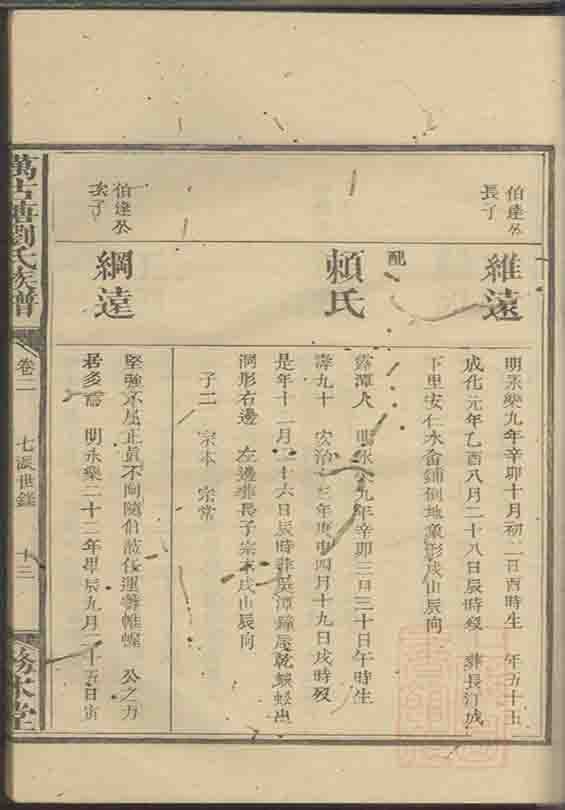 伯達公
長子
維遠
明永樂九年辛卯十月初二日酉時生 年五十五
成化元年乙酉八月二十八日辰時歿 葬長汀城
下里安仁水畬鋪倒地象形戌山辰向
配
賴氏
露潭人 明永樂九年辛卯三月三十日午時生
壽九十 弘治十三年庚申四月十九日戌時歿
是年十二月二十六日辰時葬吳潭鐘屋乾蜈蚣出
洞形右邊 左邊葬長子宗本戌山辰向
子二 宗本 宗常
伯達公
次子
綱遠
堅強不屈正直不阿隨伯 從運籌帷幄 公之力
居多焉 明永樂二十二年甲辰九月二十五日寅
萬古塘劉氏族譜
卷二
七派世錄
十三
務本堂